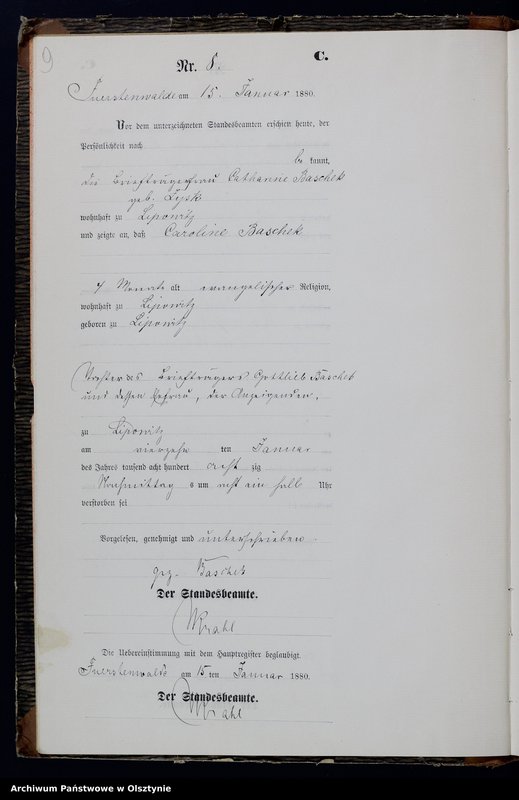 9
C.
Nr. 8.
Fuerstenwalde am 15. Januar 1880.
Vor dem unterzeichneten Standesbeamten erschien heute, der
Persönlichkeit nach
be kannt,
die Briefträgerfrau Catharine Baschek
geb. Lysk
wohnhaft zu Lipowitz
und zeigte an, daß Caroline Baschek
7 Monate alt evangelischer Religion,
wohnhaft zu Lipowitz
geboren zu Lipowitz
Tochter des Briefträgers Gottlieb Baschek
und dessen Ehefrau, der Anzeigenden,
zu Lipowitz
am vierzehn ten Januar
des Jahres tausend acht hundert acht zig
Nachmittag s um acht ein halb Uhr
verstorben sei
Vorgelesen, genehmigt und unterschrieben.
gez. Baschek
Der Standesbeamte.
Krahl
Die Uebereinstimmung mit dem Hauptregister beglaubigt.
Fuerstenwalde am 15 ten Januar 1880.
Der Standesbeamte.
Krahl
Archiwum Państwowe w Olsztynie